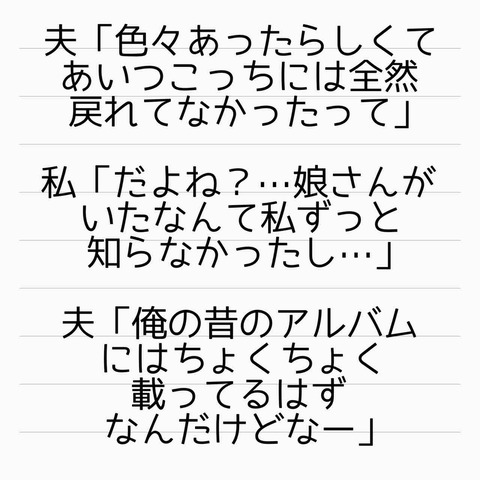 夫「色々あったらしくて
あいつこっちには全然
戻れてなかったって」
私「だよね？…娘さんが
いたなんて私ずっと
知らなかったし…」
夫「俺の昔のアルバム
にはちょくちょく
載ってるはず
なんだけどなー」